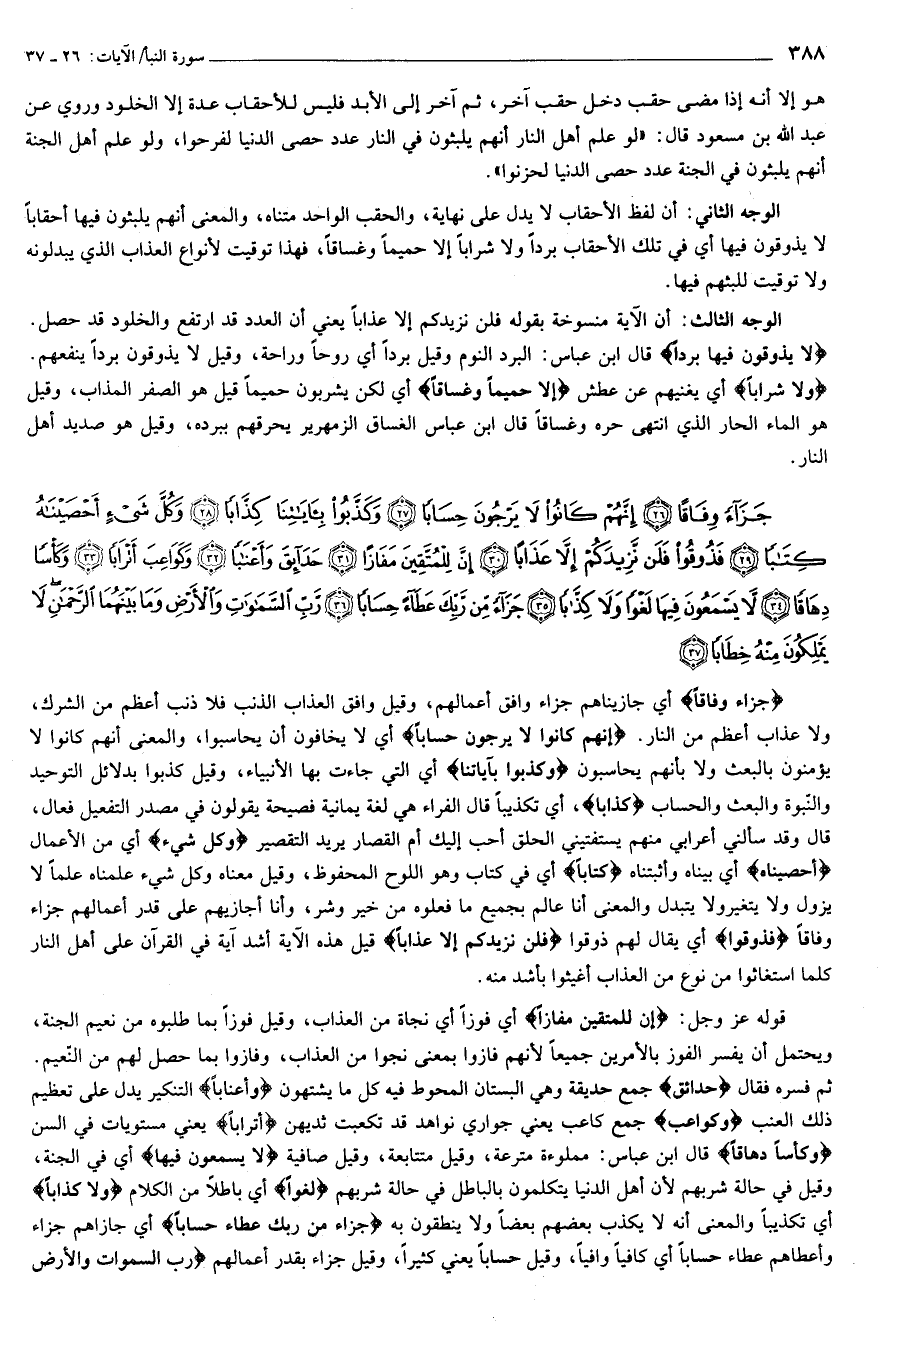 ٣٨٨ سورة النبأ/ الآيات: ٢٦ ـ ٣٧
هو إلا أنه إذا مضى حقب دخل حقب آخر، ثم آخر إلى الأبد فليس للأحقاب عدة إلا الخلود وروي عن
عبد الله بن مسعود قال: «لو علم أهل النار أنهم يلبثون في النار عدد حصى الدنيا لفرحوا، ولو علم أهل الجنة
أنهم يلبثون في الجنة عدد حصى الدنيا لحزنوا».
الوجه الثاني: أن لفظ الأحقاب لا يدل على نهاية، والحقب الواحد متناه، والمعنى أنهم يلبثون فيها أحقاباً
لا يذوقون فيها أي في تلك الأحقاب برداً ولا شراباً إلا حميماً وغساقاً، فهذا توقيت لأنواع العذاب الذي يبدلونه
ولا توقيت للبثهم فيها.
الوجه الثالث: أن الآية منسوخة بقوله فلن نزيدكم إلا عذاباً يعني أن العدد قد ارتفع والخلود قد حصل.
﴿لا يذوقون فيها برداً﴾ قال ابن عباس: البرد النوم وقيل برداً أي روحاً وراحة، وقيل لا يذوقون برداً ينفعهم.
﴿ولا شراباً﴾ أي يغنيهم عن عطش ﴿إلا حميماً وغساقاً﴾ أي لكن يشربون حميماً قيل هو الصفر المذاب، وقيل
هو الماء الحار الذي انتهى حره وغساقاً قال ابن عباس الغساق الزمهرير يحرقهم ببرده، وقيل هو صديد أهل
النار.
جَزَآءً وِفَاقًا ﴿٢٦﴾ إِنَّهُمْ كَانُوا۟ لَا يَرْجُونَ حِسَابًا ﴿٢٧﴾ وَكَذَّبُوا۟ بِـَٔايَـٰتِنَا كِذَّابًا ﴿٢٨﴾ وَكُلَّ شَىْءٍ أَحْصَيْنَـٰهُ
كِتَـٰبًا ﴿٢٩﴾ فَذُوقُوا۟ فَلَن نَّزِيدَكُمْ إِلَّا عَذَابًا ﴿٣٠﴾ إِنَّ لِلْمُتَّقِينَ مَفَازًا ﴿٣١﴾ حَدَآئِقَ وَأَعْنَـٰبًا ﴿٣٢﴾ وَكَوَاعِبَ أَتْرَابًا ﴿٣٣﴾ وَكَأْسًا
دِهَاقًا ﴿٣٤﴾ لَّا يَسْمَعُونَ فِيهَا لَغْوًا وَلَا كِذَّٰبًا ﴿٣٥﴾ جَزَآءً مِّن رَّبِّكَ عَطَآءً حِسَابًا ﴿٣٦﴾ رَّبِّ ٱلسَّمَـٰوَٰتِ وَٱلْأَرْضِ وَمَا بَيْنَهُمَا ٱلرَّحْمَـٰنِ ۖ لَا
يَمْلِكُونَ مِنْهُ خِطَابًا ﴿٣٧﴾
﴿جزاء وفاقاً﴾ أي جازيناهم جزاء وافق أعمالهم، وقيل وافق العذاب الذنب فلا ذنب أعظم من الشرك،
ولا عذاب أعظم من النار. ﴿إنهم كانوا لا يرجون حساباً﴾ أي لا يخافون أن يحاسبوا، والمعنى أنهم كانوا لا
يؤمنون بالبعث ولا بأنهم يحاسبون ﴿وكذبوا بآياتنا﴾ أي التي جاءت بها الأنبياء، وقيل كذبوا بدلائل التوحيد
والنّبوة والبعث والحساب ﴿كذابا﴾، أي تكذيباً قال الفراء هي لغة يمانية فصيحة يقولون في مصدر التفعيل فعال،
قال وقد سألني أعرابي منهم يستفتيني الحلق أحب إليك أم القصار يريد التقصير ﴿وكل شيء﴾ أي من الأعمال
﴿أحصيناه﴾ أي بيناه وأثبتناه ﴿كتاباً﴾ أي في كتاب وهو اللوح المحفوظ، وقيل معناه وكل شيء علمناه علماً لا
يزول ولا يتغيرولا يتبدل والمعنى أنا عالم بجميع ما فعلوه من خير وشر، وأنا أجازيهم على قدر أعمالهم جزاء
وفاقاً ﴿فذوقوا﴾ أي يقال لهم ذوقوا ﴿فلن نزيدكم إلا عذاباً﴾ قيل هذه الآية أشد آية في القرآن على أهل النار
كلما استغاثوا من نوع من العذاب أغيثوا بأشد منه.
قوله عز وجل: ﴿إن للمتقين مفازاً﴾ أي فوزاً أي نجاة من العذاب، وقيل فوزاً بما طلبوه من نعيم الجنة،
ويحتمل أن يفسر الفوز بالأمرين جميعاً لأنهم فازوا بمعنى نجوا من العذاب، وفازوا بما حصل لهم من النّعيم.
ثم فسره فقال ﴿حدائق﴾ جمع حديقة وهي البستان المحوط فيه كل ما يشتهون ﴿وأعناباً﴾ التنكير يدل على تعظيم
ذلك العنب ﴿وكواعب﴾ جمع كاعب يعني جواري نواهد قد تكعبت ثديهن ﴿أتراباً﴾ يعني مستويات في السن
﴿وكأساً دهاقاً﴾ قال ابن عباس: مملوءة مترعة، وقيل متتابعة، وقيل صافية ﴿لا يسمعون فيها﴾ أي في الجنة،
وقيل في حالة شربهم لأن أهل الدنيا يتكلمون بالباطل في حالة شربهم ﴿لغواً﴾ أي باطلاً من الكلام ﴿ولا كذاباً﴾
أي تكذيباً والمعنى أنه لا يكذب بعضهم بعضاً ولا ينطقون به ﴿جزاء من ربك عطاء حساباً﴾ أي جازاهم جزاء
وأعطاهم عطاء حساباً أي كافياً وافياً، وقيل حساباً يعني كثيراً، وقيل جزاء بقدر أعمالهم ﴿رب السموات والأرض